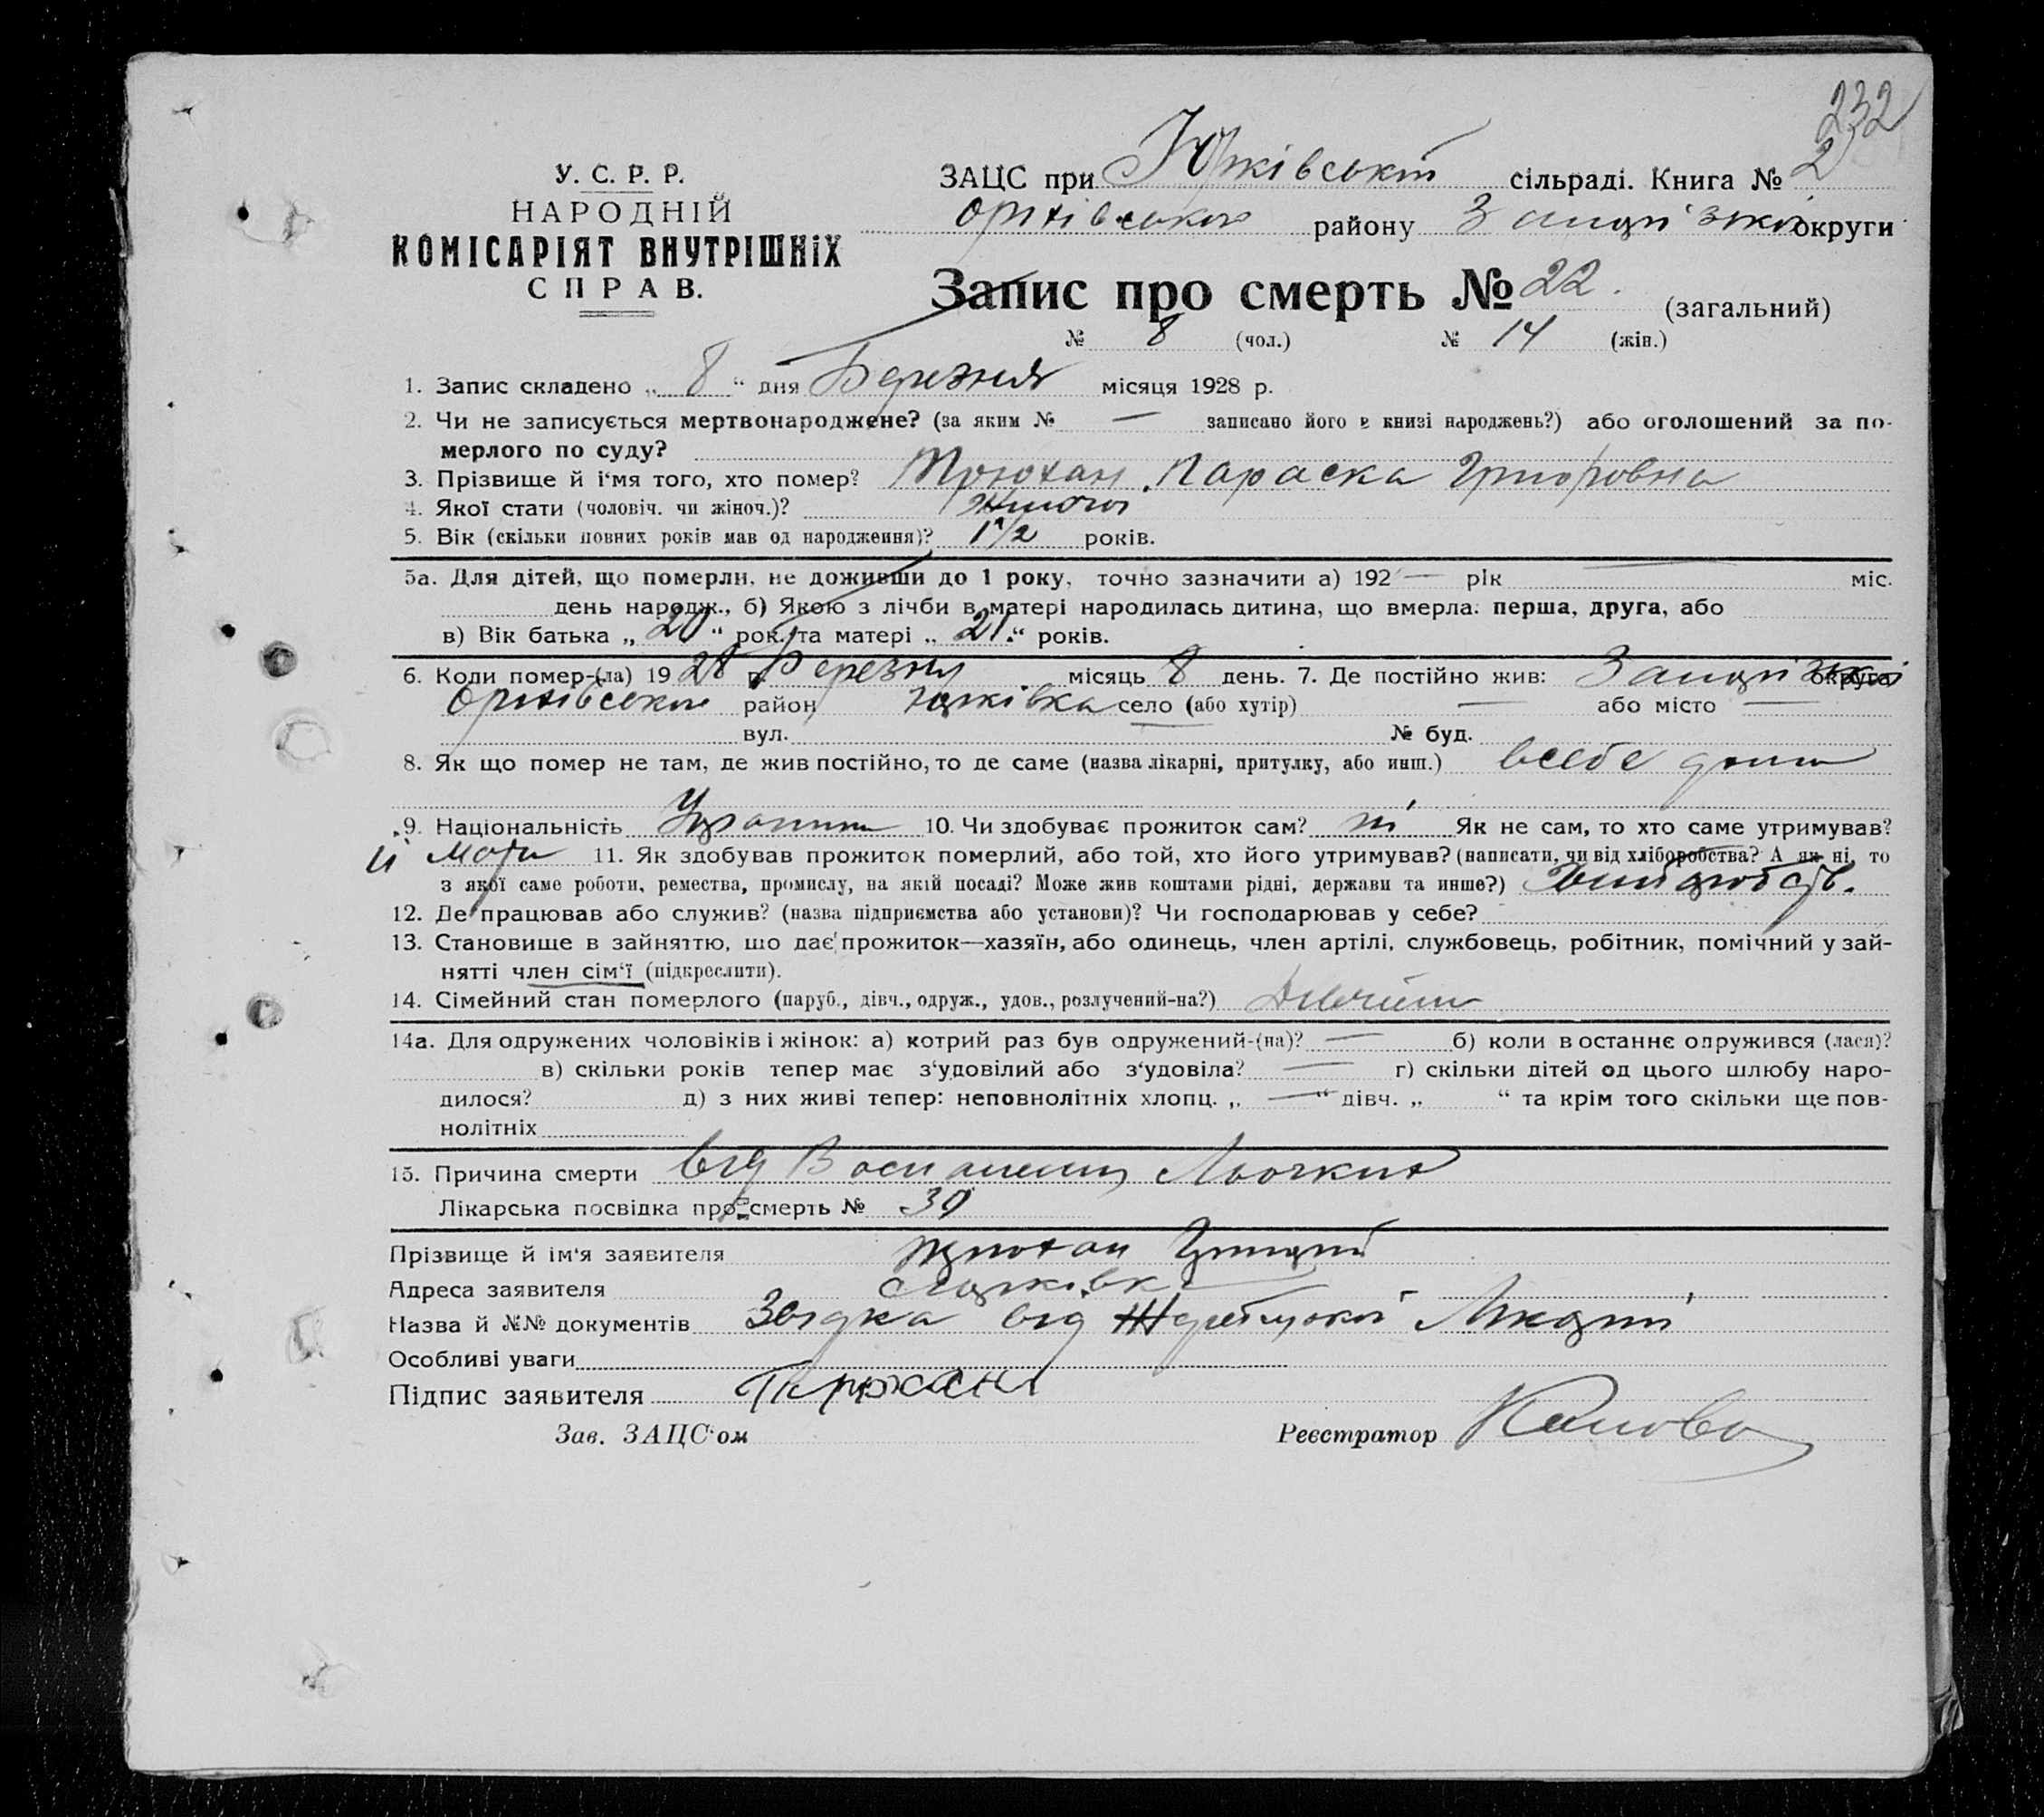 232
У. С. Р. Р.
НАРОДНІЙ
КОМІСАРІЯТ ВНУТРІШНІХ
СПРАВ.
ЗАЦС при Юрківській сільраді. Книга № 2
Оріхівського району Запорізької округи
Запис про смерть № 22. (загальний)
№ 8 (чол.) № 14 (жін.)
1. Запис складено „ 8 “ дня Березня місяця 1928 р.
2. Чи не записується мертвонароджене? (за яким № — записано його в книзі народжень?) або оголошений за по-
мерлого по суду?
3. Прізвище й і‘мя того, хто помер? Трюхан Параска Григоровна
4. Якої стати (чоловіч. чи жіноч.)? жіночої
5. Вік (скільки повних років мав од народження)? 1 1/2 років.
5а. Для дітей, що померли, не доживши до 1 року, точно зазначити а) 192 — рік — міс.
день народж., б) Якою з лічби в матері народилась дитина, що вмерла: перша, друга, або
в) Вік батька „ 20 “ рок. та матері „ 21. “ років.
6. Коли помер-(ла) 19 28 р. Березня місяць 8 день. 7. Де постійно жив: Запорізької округа
Оріхівського район Юрківка село (або хутір) — або місто —
вул. № буд.
8. Як що помер не там, де жив постійно, то де саме (назва лікарні, притулку, або инш.) всебе дома
9. Національність 10. Чи здобуває прожиток сам? ні Як не сам, то хто саме утримував?
її Мати 11. Як здобував прожиток померлий, або той, хто його утримував? (написати, чи від хліборобства? А як ні, то
з якої саме роботи, ремества, промислу, на якій посаді? Може жив коштами рідні, держави та инше?)
12. Де працював або служив? (назва підприємства або установи)? Чи господарював у себе?
13. Становище в зайняттю, що дає прожиток—хазяїн, або одинець, член артілі, службовець, робітник, помічний у зай-
нятті член сім‘ї (підкреслити).
14. Сімейний стан померлого (паруб., дівч., одруж., удов., розлучений-на?)
14а. Для одружених чоловіків і жінок: а) котрий раз був одружений-(на)? — б) коли востаннє одружився (лася)?
в) скільки років тепер має з‘удовілий або з‘удовіла? — г) скільки дітей од цього шлюбу наро-
дилося? д) з них живі тепер: неповнолітніх хлопц. „ — “ дівч. „ “ та крім того скільки ще пов-
нолітніх
15. Причина смерти від Воспаления
Лікарська посвідка про смерть № 39
Прізвище й ім‘я заявителя Трюхан Григорій
Адреса заявителя с Юрківка
Назва й №№ документів від Жеребецької Лікарні
Особливі уваги
Підпис заявителя
Зав. ЗАЦС‘ом Реєстратор